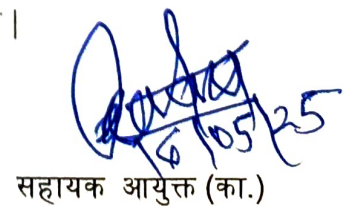 ।
16/05/25
सहायक आयुक्त (का.)